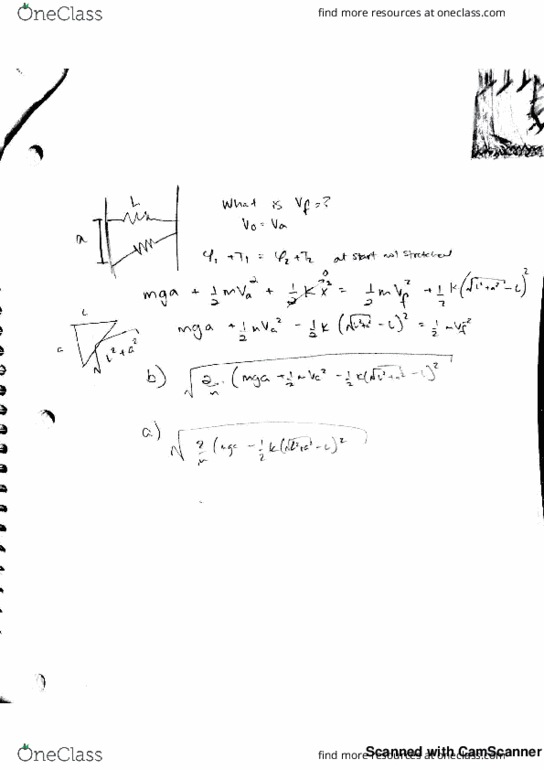 OneClass
find more resources at oneclass.com
L
What is Vf = ?
V₀ = Va
a
φ₁ + T₁ = φ₂ + T₂ at start not stretched
mga + ½ mVa² + ½ k x² = ½ m Vf² + ½ k(√(L²+a²) - L)²
0
L
mga + ½ mVa² - ½ k (√(L²+a²) - L)² = ½ m Vf²
a
√L²+a²
b) √ 2/m (mga + ½ m Va² - ½ k(√(L²+a²) - L)²
a) √ 2/m (mga - ½ k(√(L²+a²) - L)²
OneClass
find more resources at oneclass.com
Scanned with CamScanner